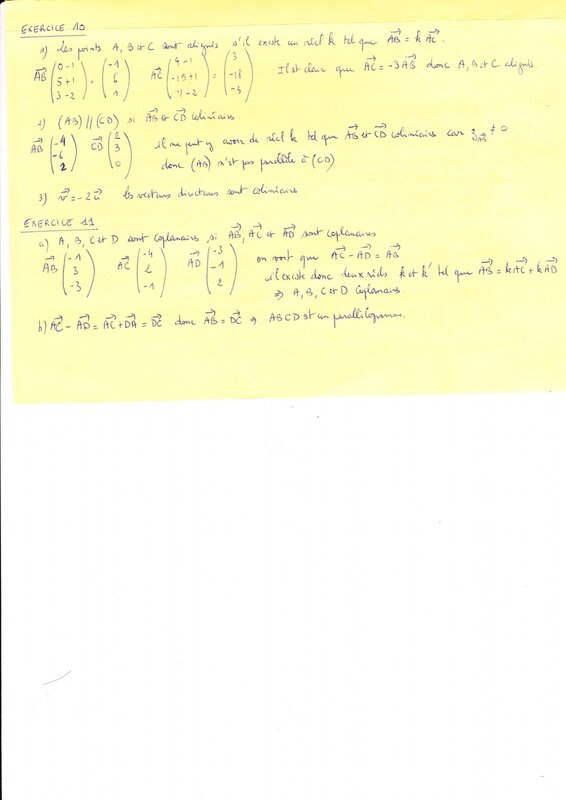 EXERCICE 10
1) Les points A, B et C sont alignés s'il existe un réel k tel que AB⃗ = k AC⃗.
AB⃗ (0-1 5+1 3-2) = (-1 6 1) AC⃗ (4-1 -19+1 -1-2) = (3 -18 -3) Il est clair que AC⃗ = -3AB⃗ donc A, B et C alignés
2) (AB) // (CD) si AB⃗ et CD⃗ colinéaires
AB⃗ (-4 -6 2) CD⃗ (2 3 0) il ne peut y avoir de réel k tel que AB⃗ et CD⃗ colinéaires car z_AB⃗ ≠ 0
donc (AB) n'est pas parallèle à (CD)
3) v⃗ = -2u⃗ les vecteurs directeurs sont colinéaires
EXERCICE 11
a) A, B, C et D sont coplanaires si AB⃗, AC⃗ et AD⃗ sont coplanaires
AB⃗ (-1 3 -3) AC⃗ (-4 2 -1) AD⃗ (-3 -1 2) on voit que AC⃗ - AD⃗ = AB⃗
il existe donc deux réels k et k' tel que AB⃗ = kAC⃗ + kAD⃗
⇒ A, B, C et D coplanaires.
b) AC⃗ - AD⃗ = AC⃗ + DA⃗ = DC⃗ donc AB⃗ = DC⃗ ⇒ ABCD est un parallélogramme.